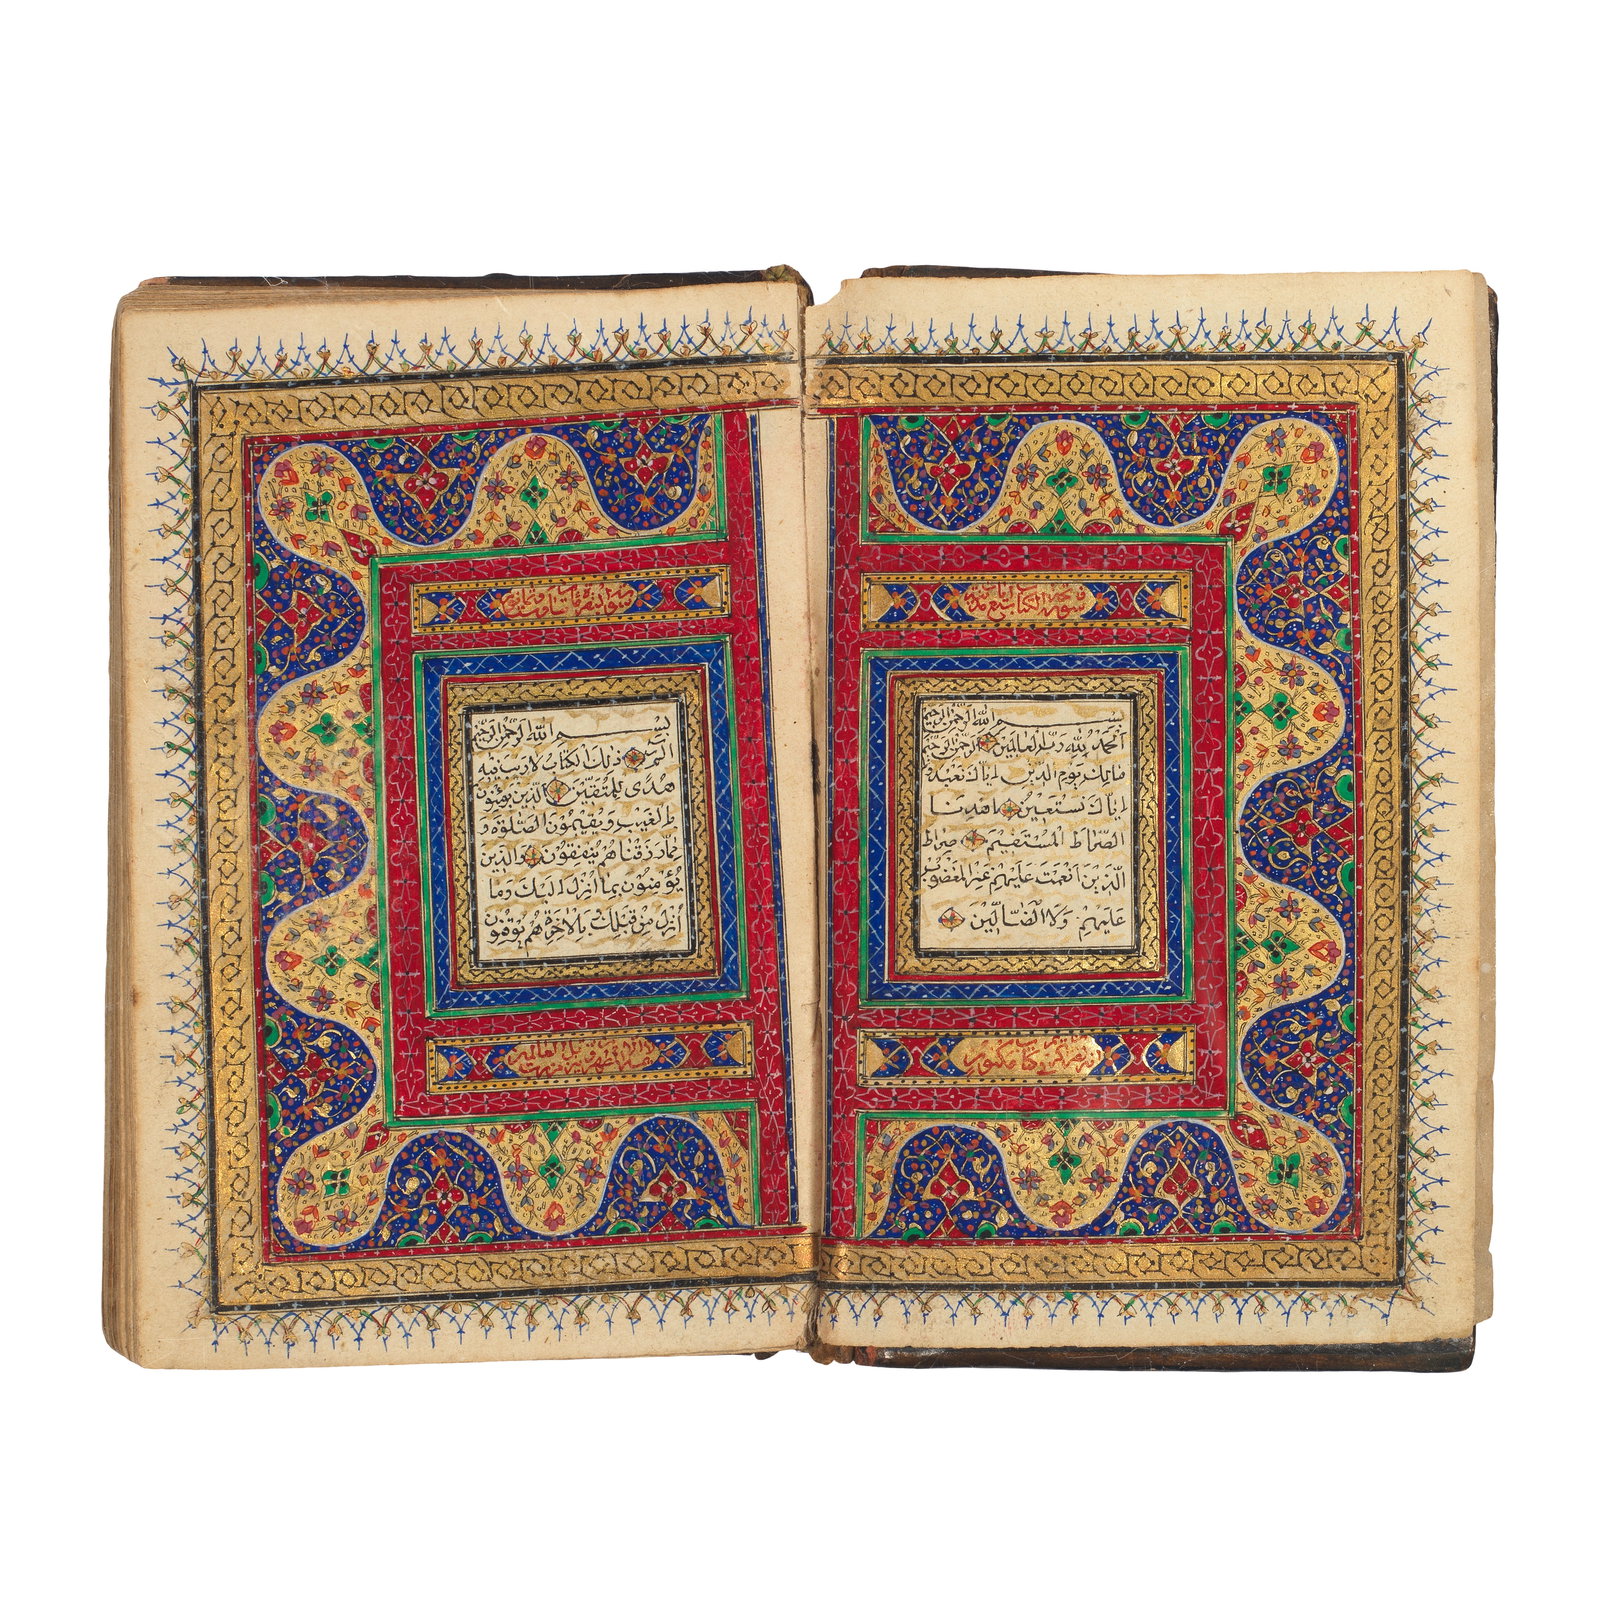 سورة الكتاب سبع آيات
بسم الله الرحمن الرحيم
الحمد لله رب العالمين الرحمن الرحيم
مالك يوم الدين اياك نعبد و
اياك نستعين اهدنا
الصراط المستقيم صراط
الذين انعمت عليهم غير المغضوب
عليهم ولا الضالين
بسم الله الرحمن الرحيم
الم ذلك الكتاب لا ريب فيه
هدى للمتقين الذين يؤمنون
بالغيب ويقيمون الصلوة و
مما رزقناهم ينفقون والذين
يؤمنون بما أنزل اليك وما
أنزل من قبلك وبالاخرة هم يوقنون